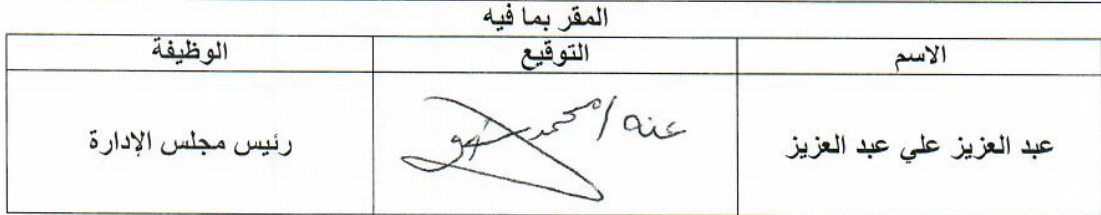 المقر بما فيه
الاسم التوقيع الوظيفة
عبد العزيز علي عبد العزيز عنه / محمد رئيس مجلس الإدارة